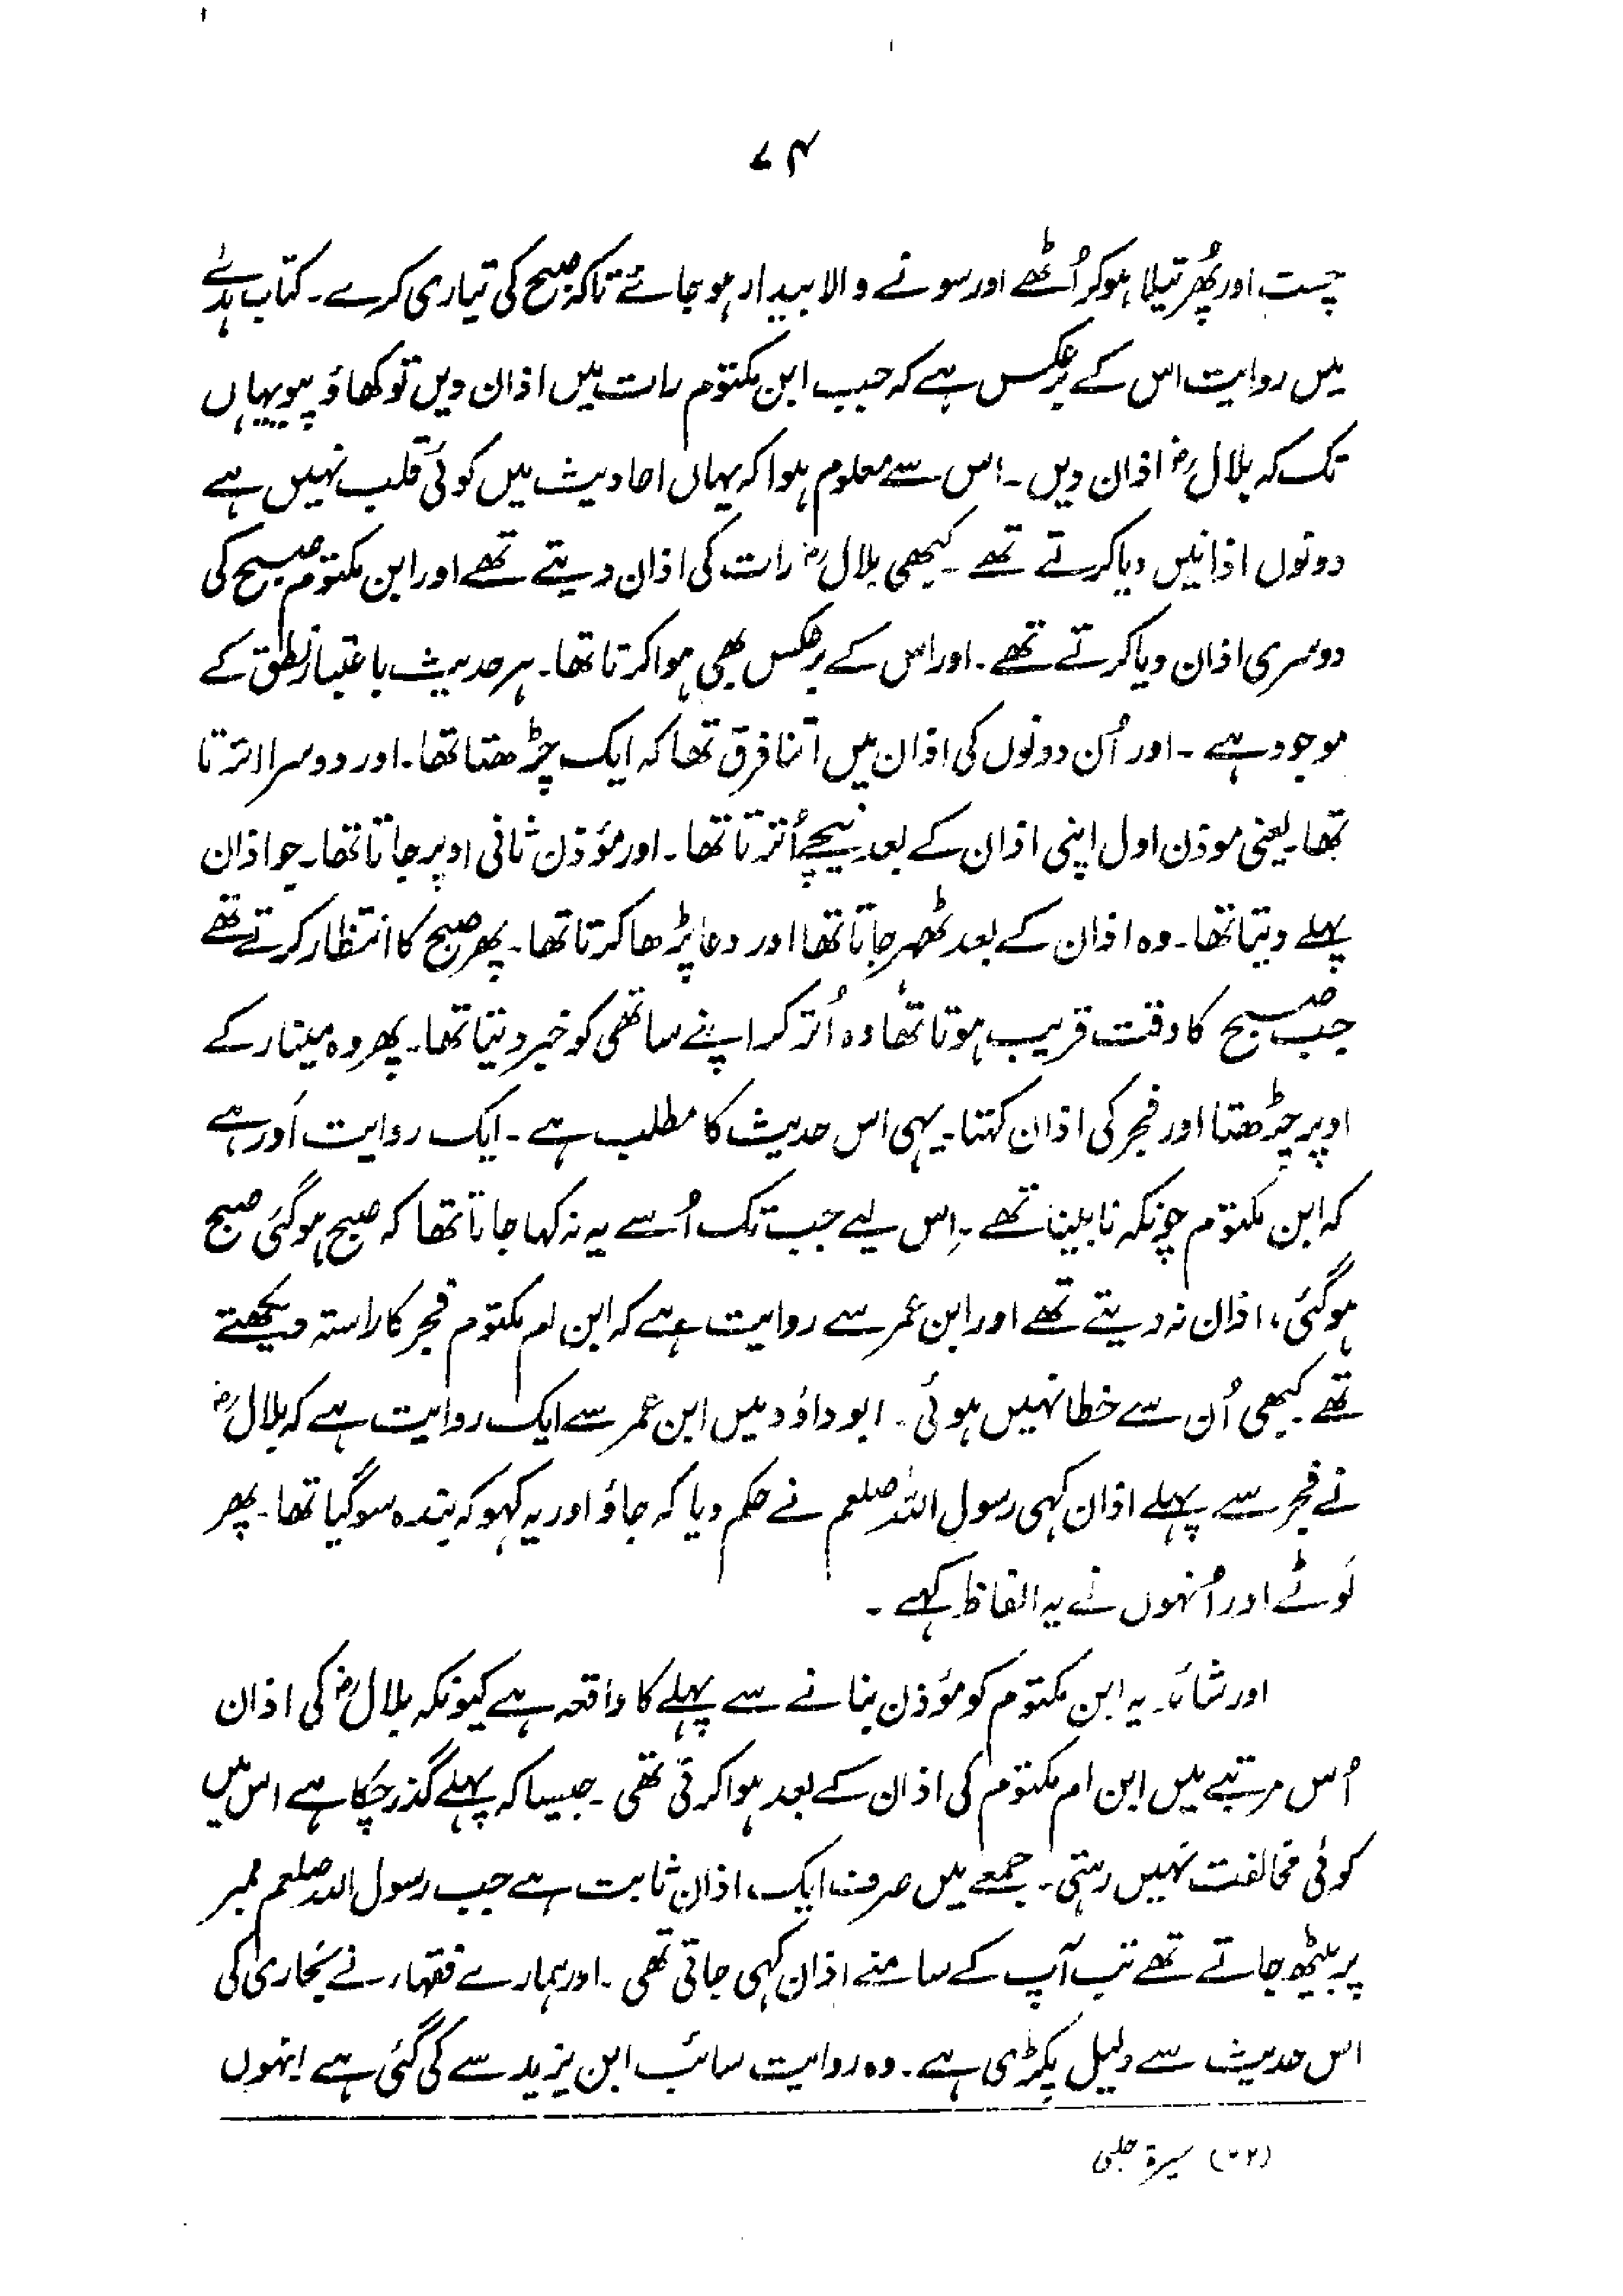 ۷۴
چست اور پُھرتیلا ہوکر اُٹھے اور سونے والا بیدار ہو جائے تاکہ صبح کی تیاری کرے۔ کتاب ہدٰے
میں روایت اس کے برعکس ہے کہ جب ابن مکتوم رات میں اذان دیں تو کھاؤ پیو یہاں
تک کہ بلالؓ اذان دیں۔ اس سے معلوم ہوا کہ یہاں احادیث میں کوئی قلب نہیں ہے
دونوں اذانیں دیا کرتے تھے۔ کبھی بلالؓ رات کی اذان دیتے تھے اور ابن مکتوم صبح کی
دوسری اذان دیا کرتے تھے۔ اور اس کے برعکس بھی ہوا کرتا تھا۔ ہر حدیث باعتبار نطق کے
موجود ہے۔ اور اُن دونوں کی اذان میں اتنا فرق تھا کہ ایک چڑھتا تھا۔ اور دوسرا اترتا
تھا۔ یعنی موذن اول اپنی اذان کے بعد نیچے اُترتا تھا۔ اور مؤذن ثانی اوپر جاتا تھا۔ جو اذان
پہلے دیتا تھا۔ وہ اذان کے بعد ٹھہر جاتا تھا اور دعا پڑھا کرتا تھا۔ پھر صبح کا انتظار کرتے تھے
جب صبح کا وقت قریب ہوتا تھا وہ اُتر کر اپنے ساتھی کو خبر دیتا تھا۔ پھر وہ مینار کے
اوپر چڑھتا اور فجر کی اذان کہتا۔ یہی اس حدیث کا مطلب ہے۔ ایک روایت اَور ہے
کہ ابن مکتوم چونکہ نابینا تھے۔ اِس لیے جب تک اُسے یہ نہ کہا جاتا تھا کہ صبح ہوگئی صبح
ہوگئی، اذان نہ دیتے تھے اور ابن عمر سے روایت ہے کہ ابن ام مکتوم فجر کا راستہ دیکھتے
تھے کبھی اُن سے خطا نہیں ہوئی۔ ابوداؤد میں ابن عمر سے ایک روایت ہے کہ بلالؓ
نے فجر سے پہلے اذان کہی رسول اللہ صلعم نے حکم دیا کہ جاؤ اور یہ کہو کہ بندہ سوگیا تھا۔ پھر
لَوٹے اور اُنہوں نے یہ الفاظ کہے۔
اور شائد یہ ابن مکتوم کو مؤذن بنانے سے پہلے کا واقعہ ہے کیونکہ بلالؓ کی اذان
اُس مرتبے میں ابن ام مکتوم کی اذان کے بعد ہوا کرتی تھی۔ جیسا کہ پہلے گذر چکا ہے اس میں
کوئی مخالفت نہیں رہتی۔ جمعے میں صرف ایک اذان ثابت ہے جب رسول اللہ صلعم ممبر
پر بیٹھ جاتے تھے تب آپ کے سامنے اذان کہی جاتی تھی۔ اور ہمارے فقہاء نے بخاری کی
اس حدیث سے دلیل پکڑی ہے۔ وہ روایت سائب ابن یزید سے کی گئی ہے انہوں
سیرۃ حلبی